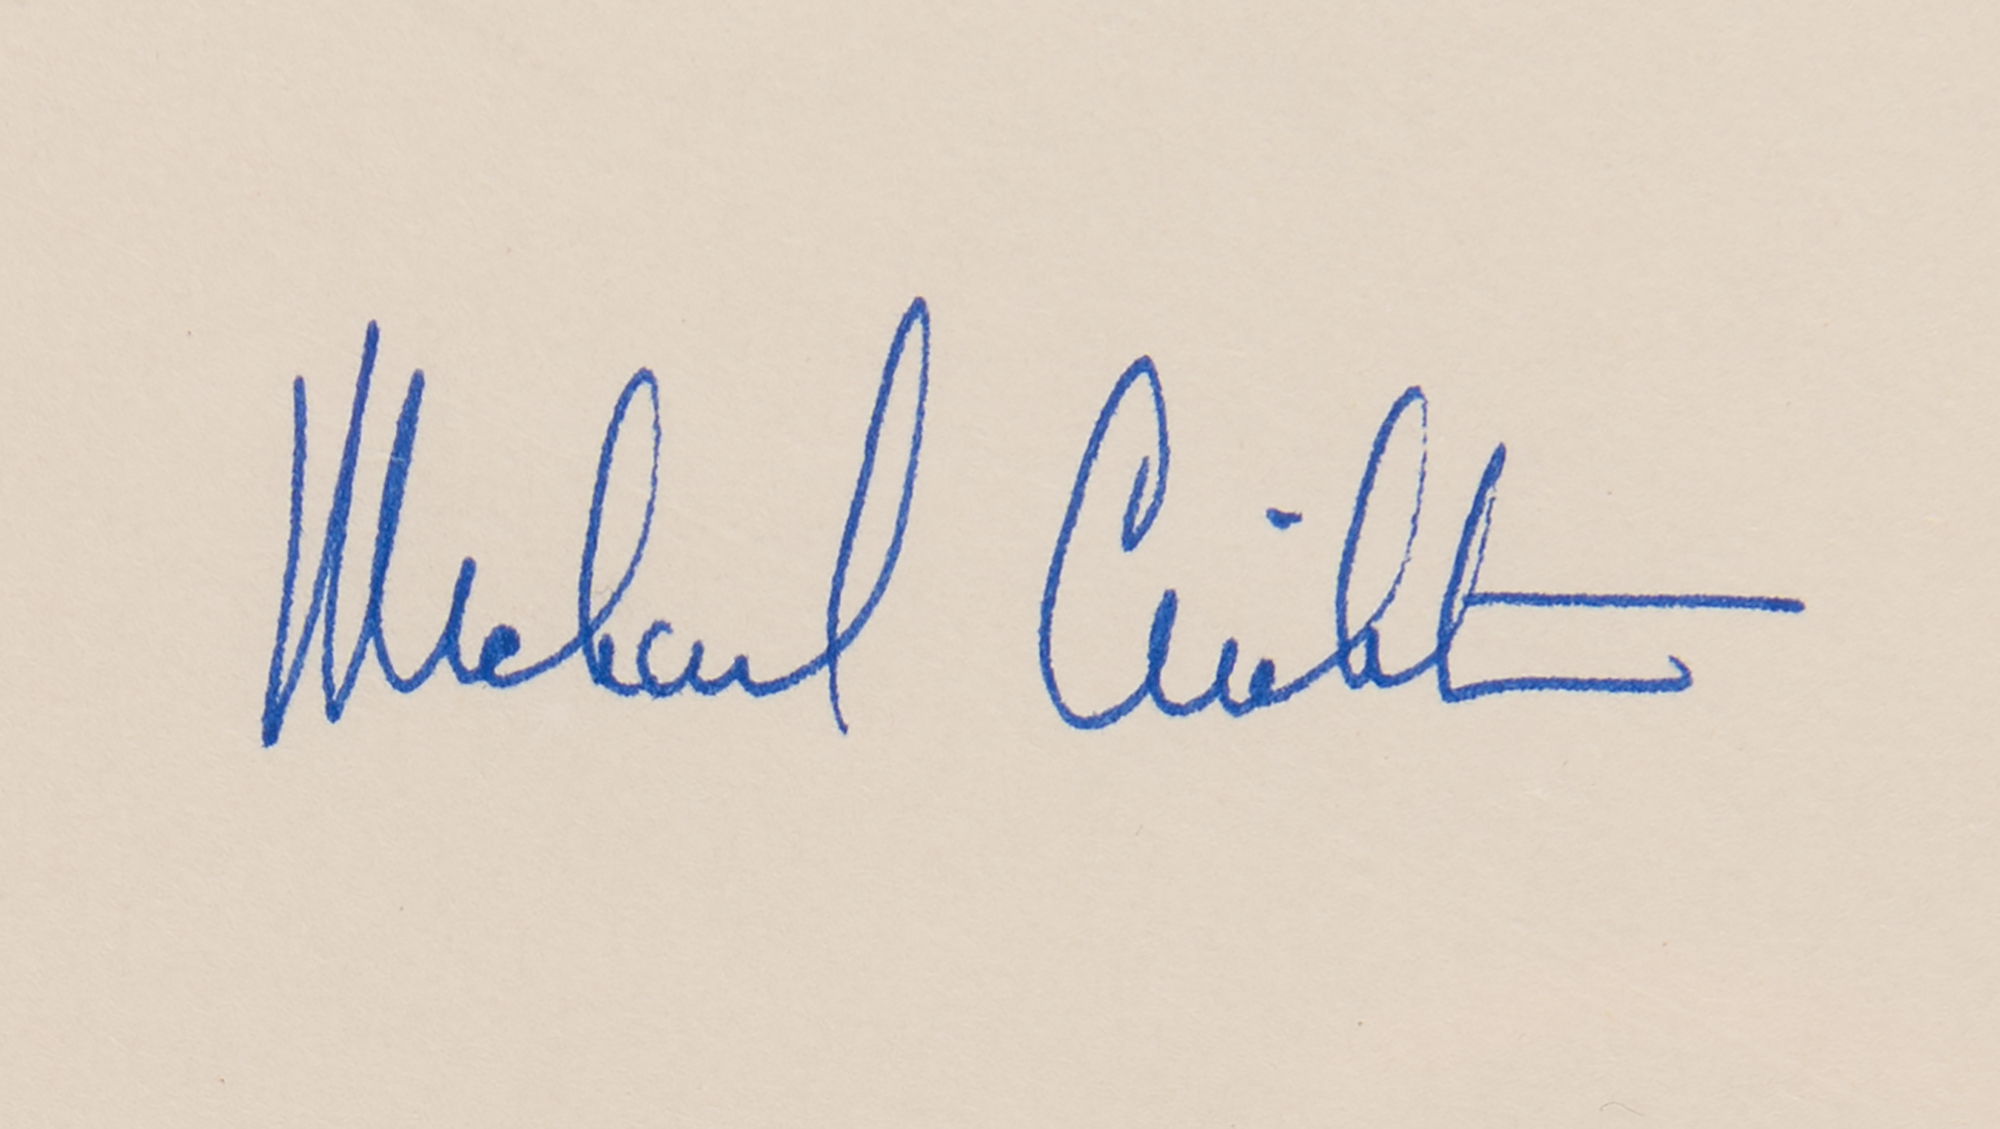 Michael Crichton